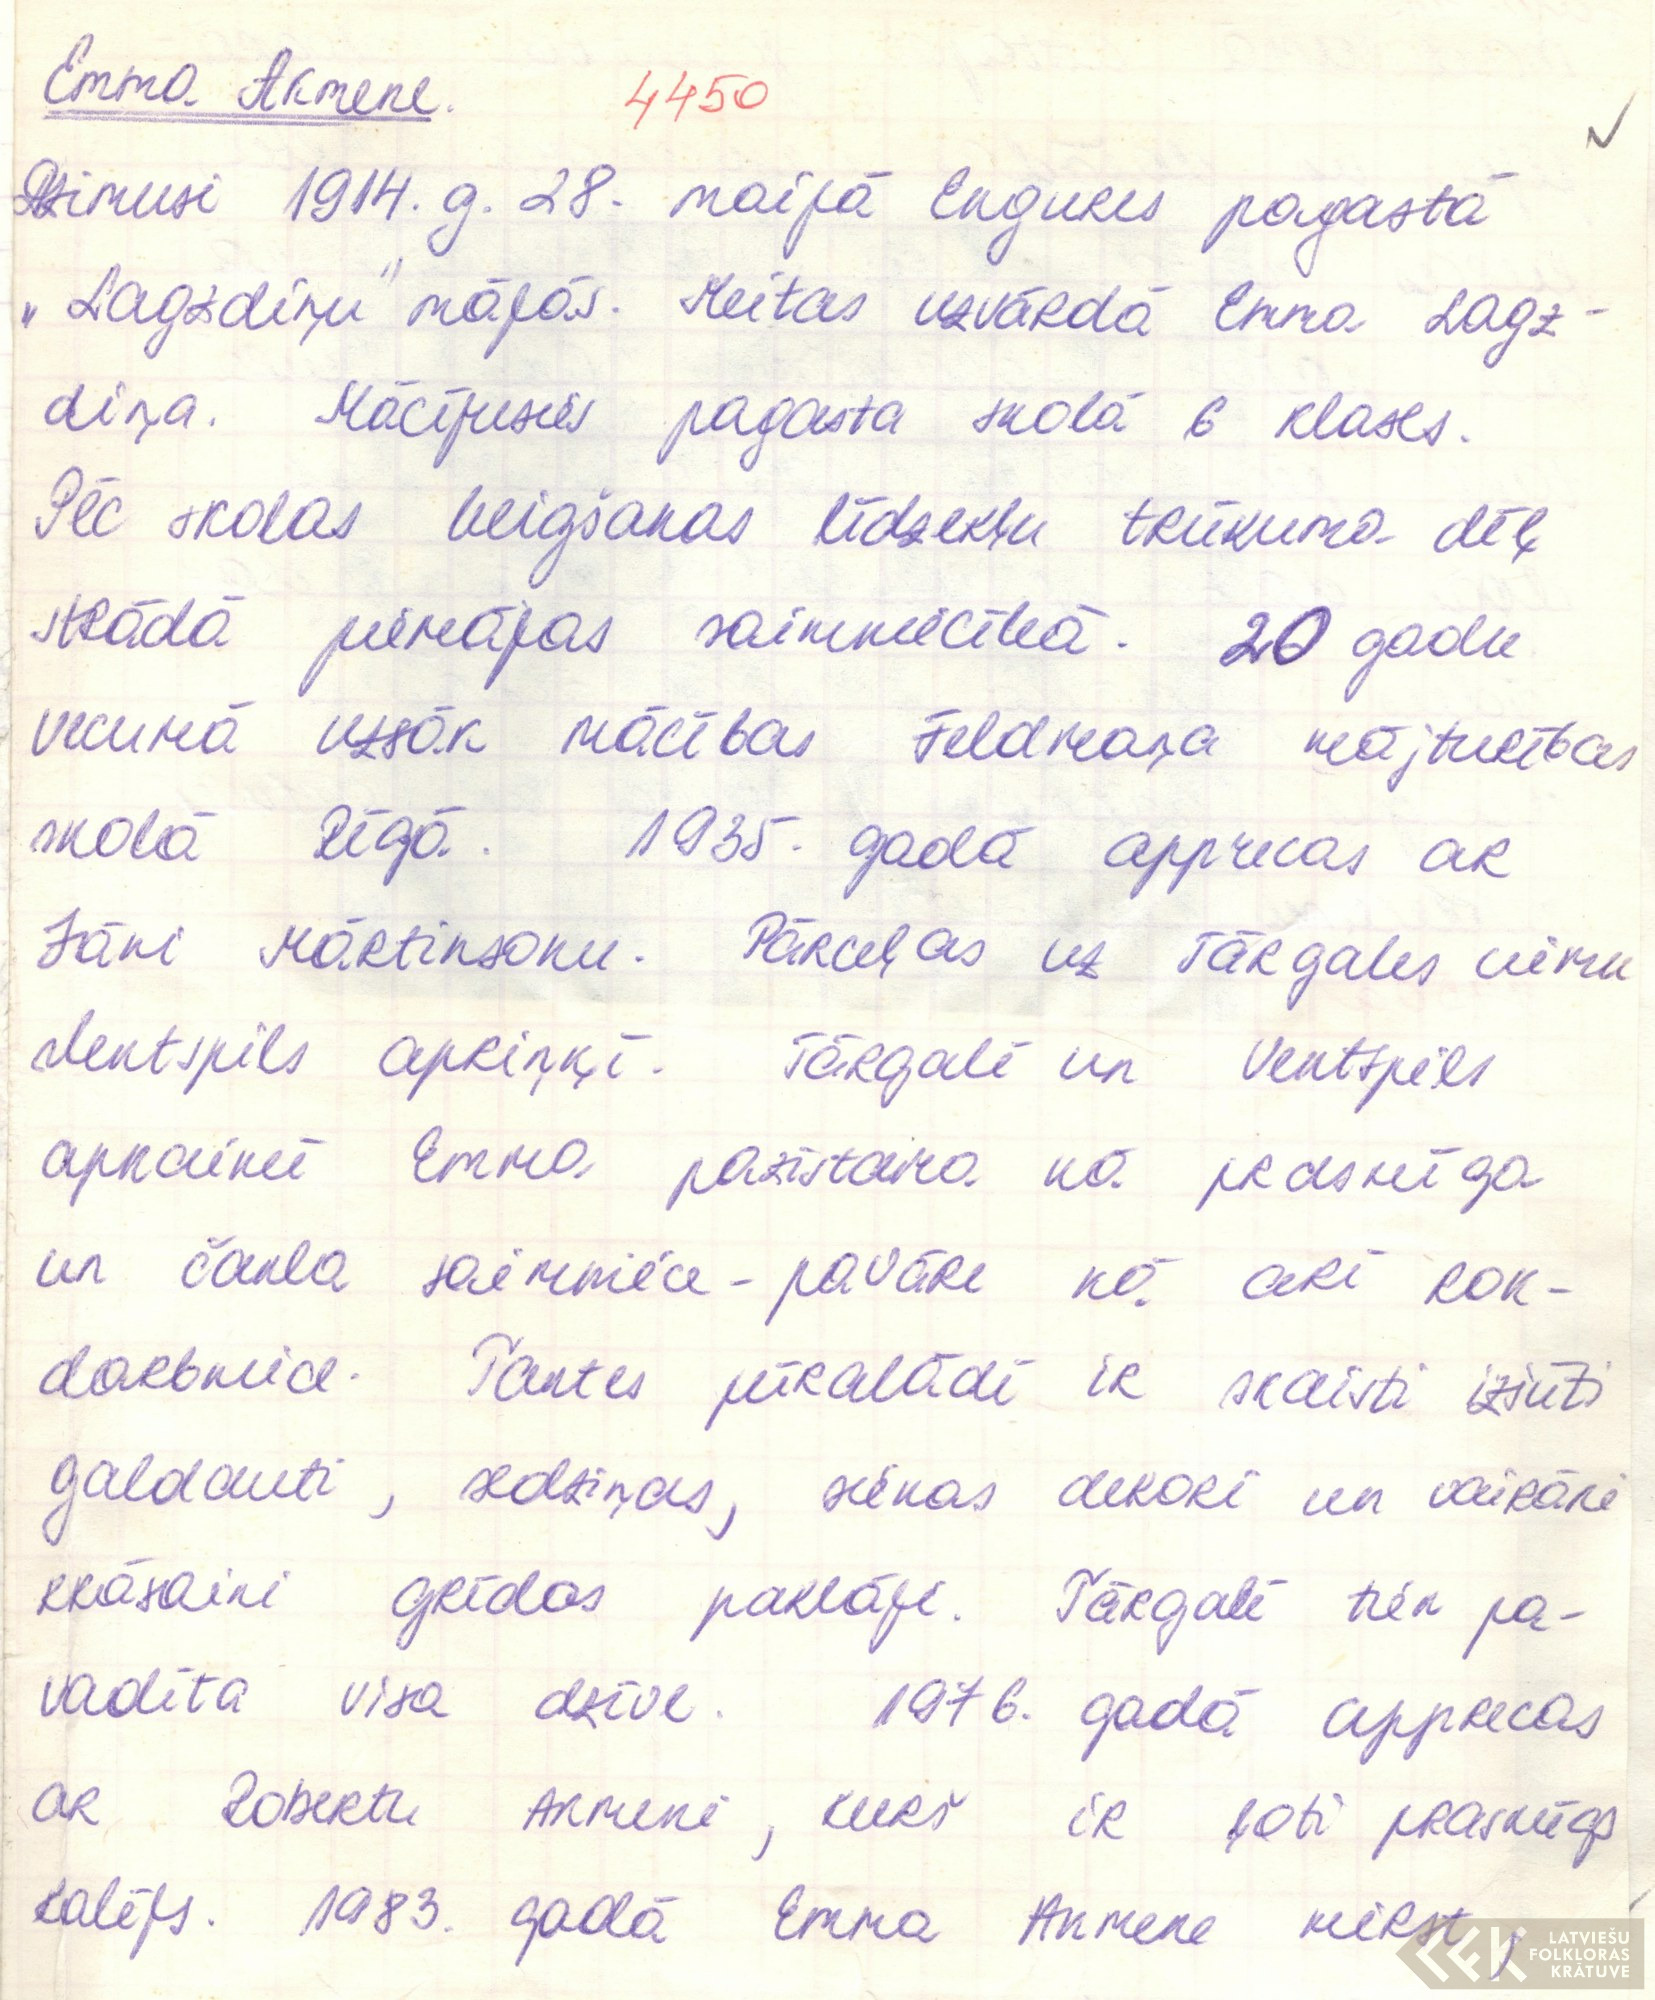 Emma Akmene. 4450
Dzimusi 1914. g. 28. maijā Engures pagastā
"Lagzdiņu" mājās. Meitas uzvārdā Emma Lagz-
diņa. Mācījusies pagasta skolā 6 klases.
Pēc skolas beigšanas līdzekļu trūkuma dēļ
strādā piemājas saimniecībā. 20 gadu
vecumā uzsāk mācības Feldmaņa mājturības
skolā Rīgā. 1935. gadā apprecas ar
Jāni Mārtinsonu. Pārceļas uz Tārgales ciemu
Ventspils apriņķī. Tārgalē un Ventspils
apkaimē Emma pazīstama kā prasmīga
un čakla saimniece-pavāre kā arī rok-
darbniece. Tantes pūralādē ir skaisti izšūti
galdauti, sedziņas, sienas dekori un vairāki
krāsaini grīdas paklāji. Tārgalē tiek pa-
vadīta visa dzīve. 1976. gadā apprecas
ar Robertu Akmeni, kurš ir ļoti prasmīgs
kalējs. 1983. gadā Emma Akmene mirst,
LATVIEŠU
FOLKLORAS
KRĀTUVE